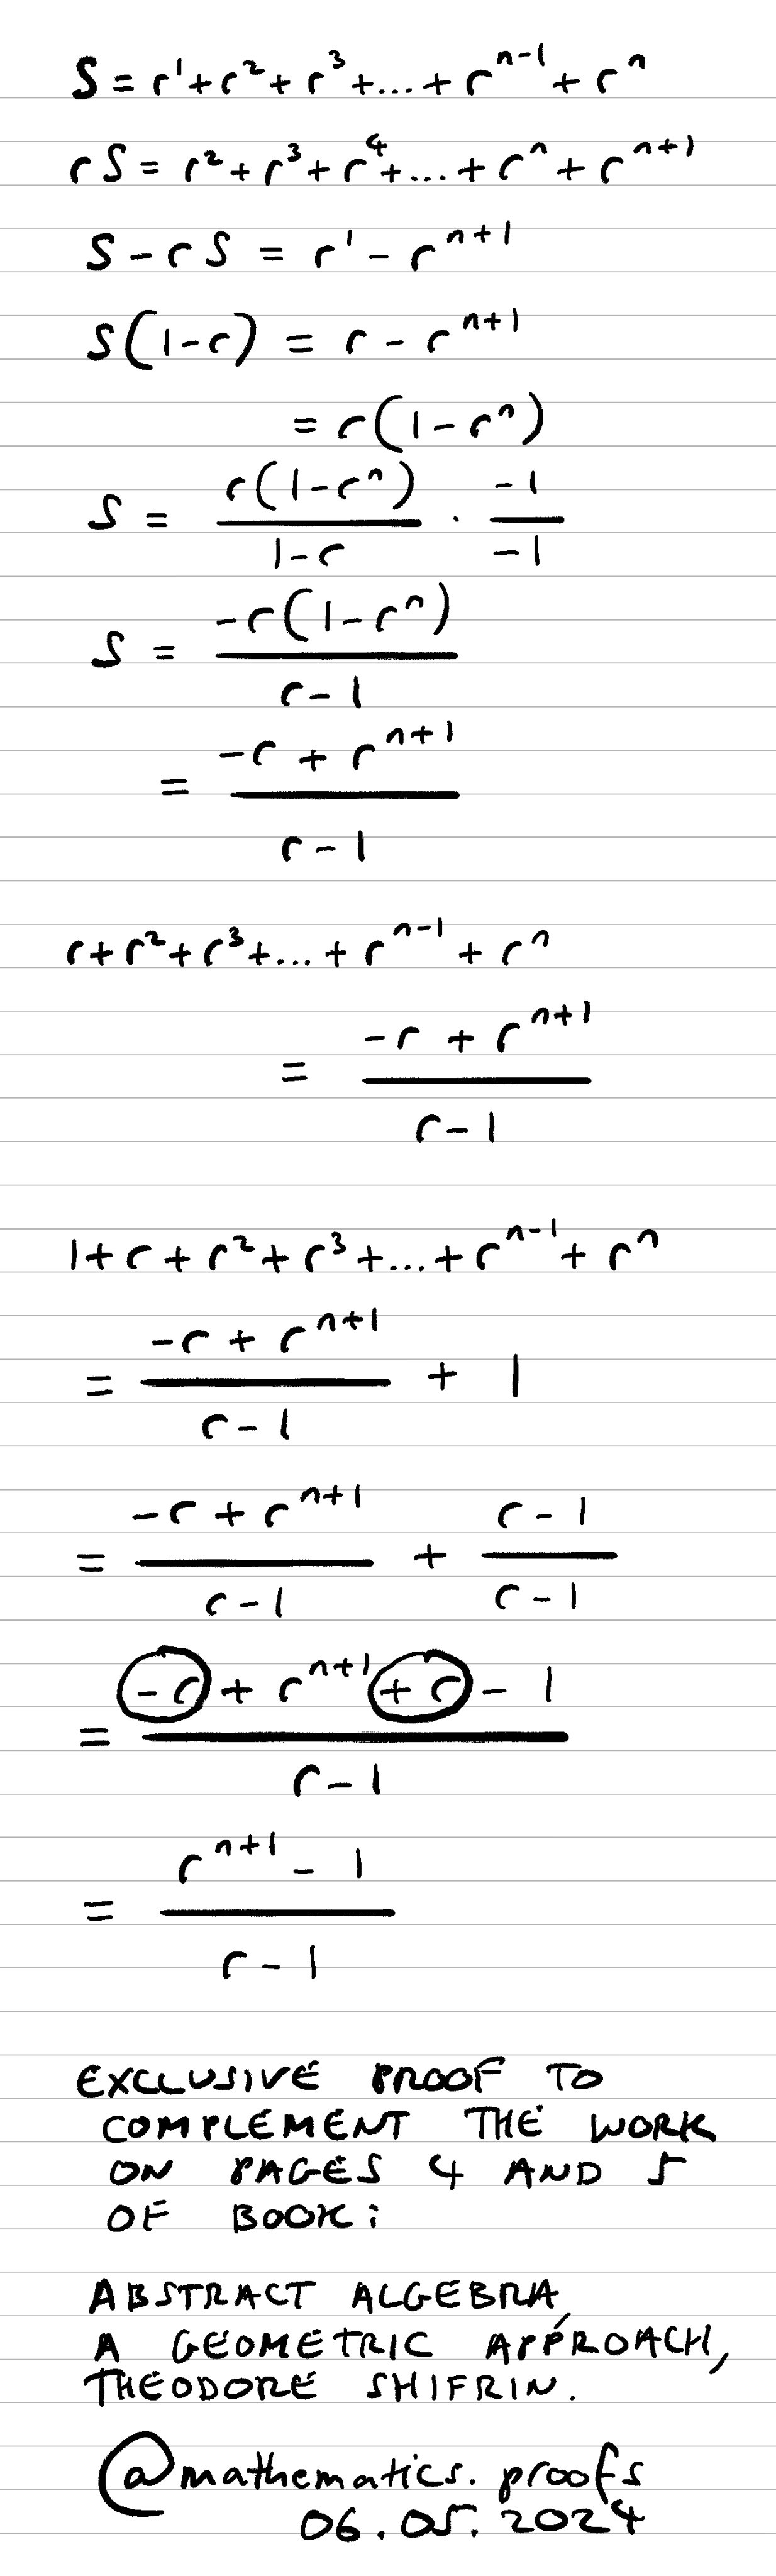 S = r¹ + r² + r³ + ... + rⁿ⁻¹ + rⁿ
rS = r² + r³ + r⁴ + ... + rⁿ + rⁿ⁺¹
S - rS = r¹ - rⁿ⁺¹
S(1-r) = r - rⁿ⁺¹
= r(1-rⁿ)
S = r(1-rⁿ)/(1-r) · -1/-1
S = -r(1-rⁿ)/(r-1)
= (-r + rⁿ⁺¹)/(r-1)
r + r² + r³ + ... + rⁿ⁻¹ + rⁿ
= (-r + rⁿ⁺¹)/(r-1)
1 + r + r² + r³ + ... + rⁿ⁻¹ + rⁿ
= (-r + rⁿ⁺¹)/(r-1) + 1
= (-r + rⁿ⁺¹)/(r-1) + (r-1)/(r-1)
= (-r + rⁿ⁺¹ + r - 1)/(r-1)
= (rⁿ⁺¹ - 1)/(r-1)
EXCLUSIVE PROOF TO
COMPLEMENT THE WORK
ON PAGES 4 AND 5
OF BOOK:
ABSTRACT ALGEBRA
A GEOMETRIC APPROACH,
THEODORE SHIFRIN.
@mathematics.proofs
06.05.2024